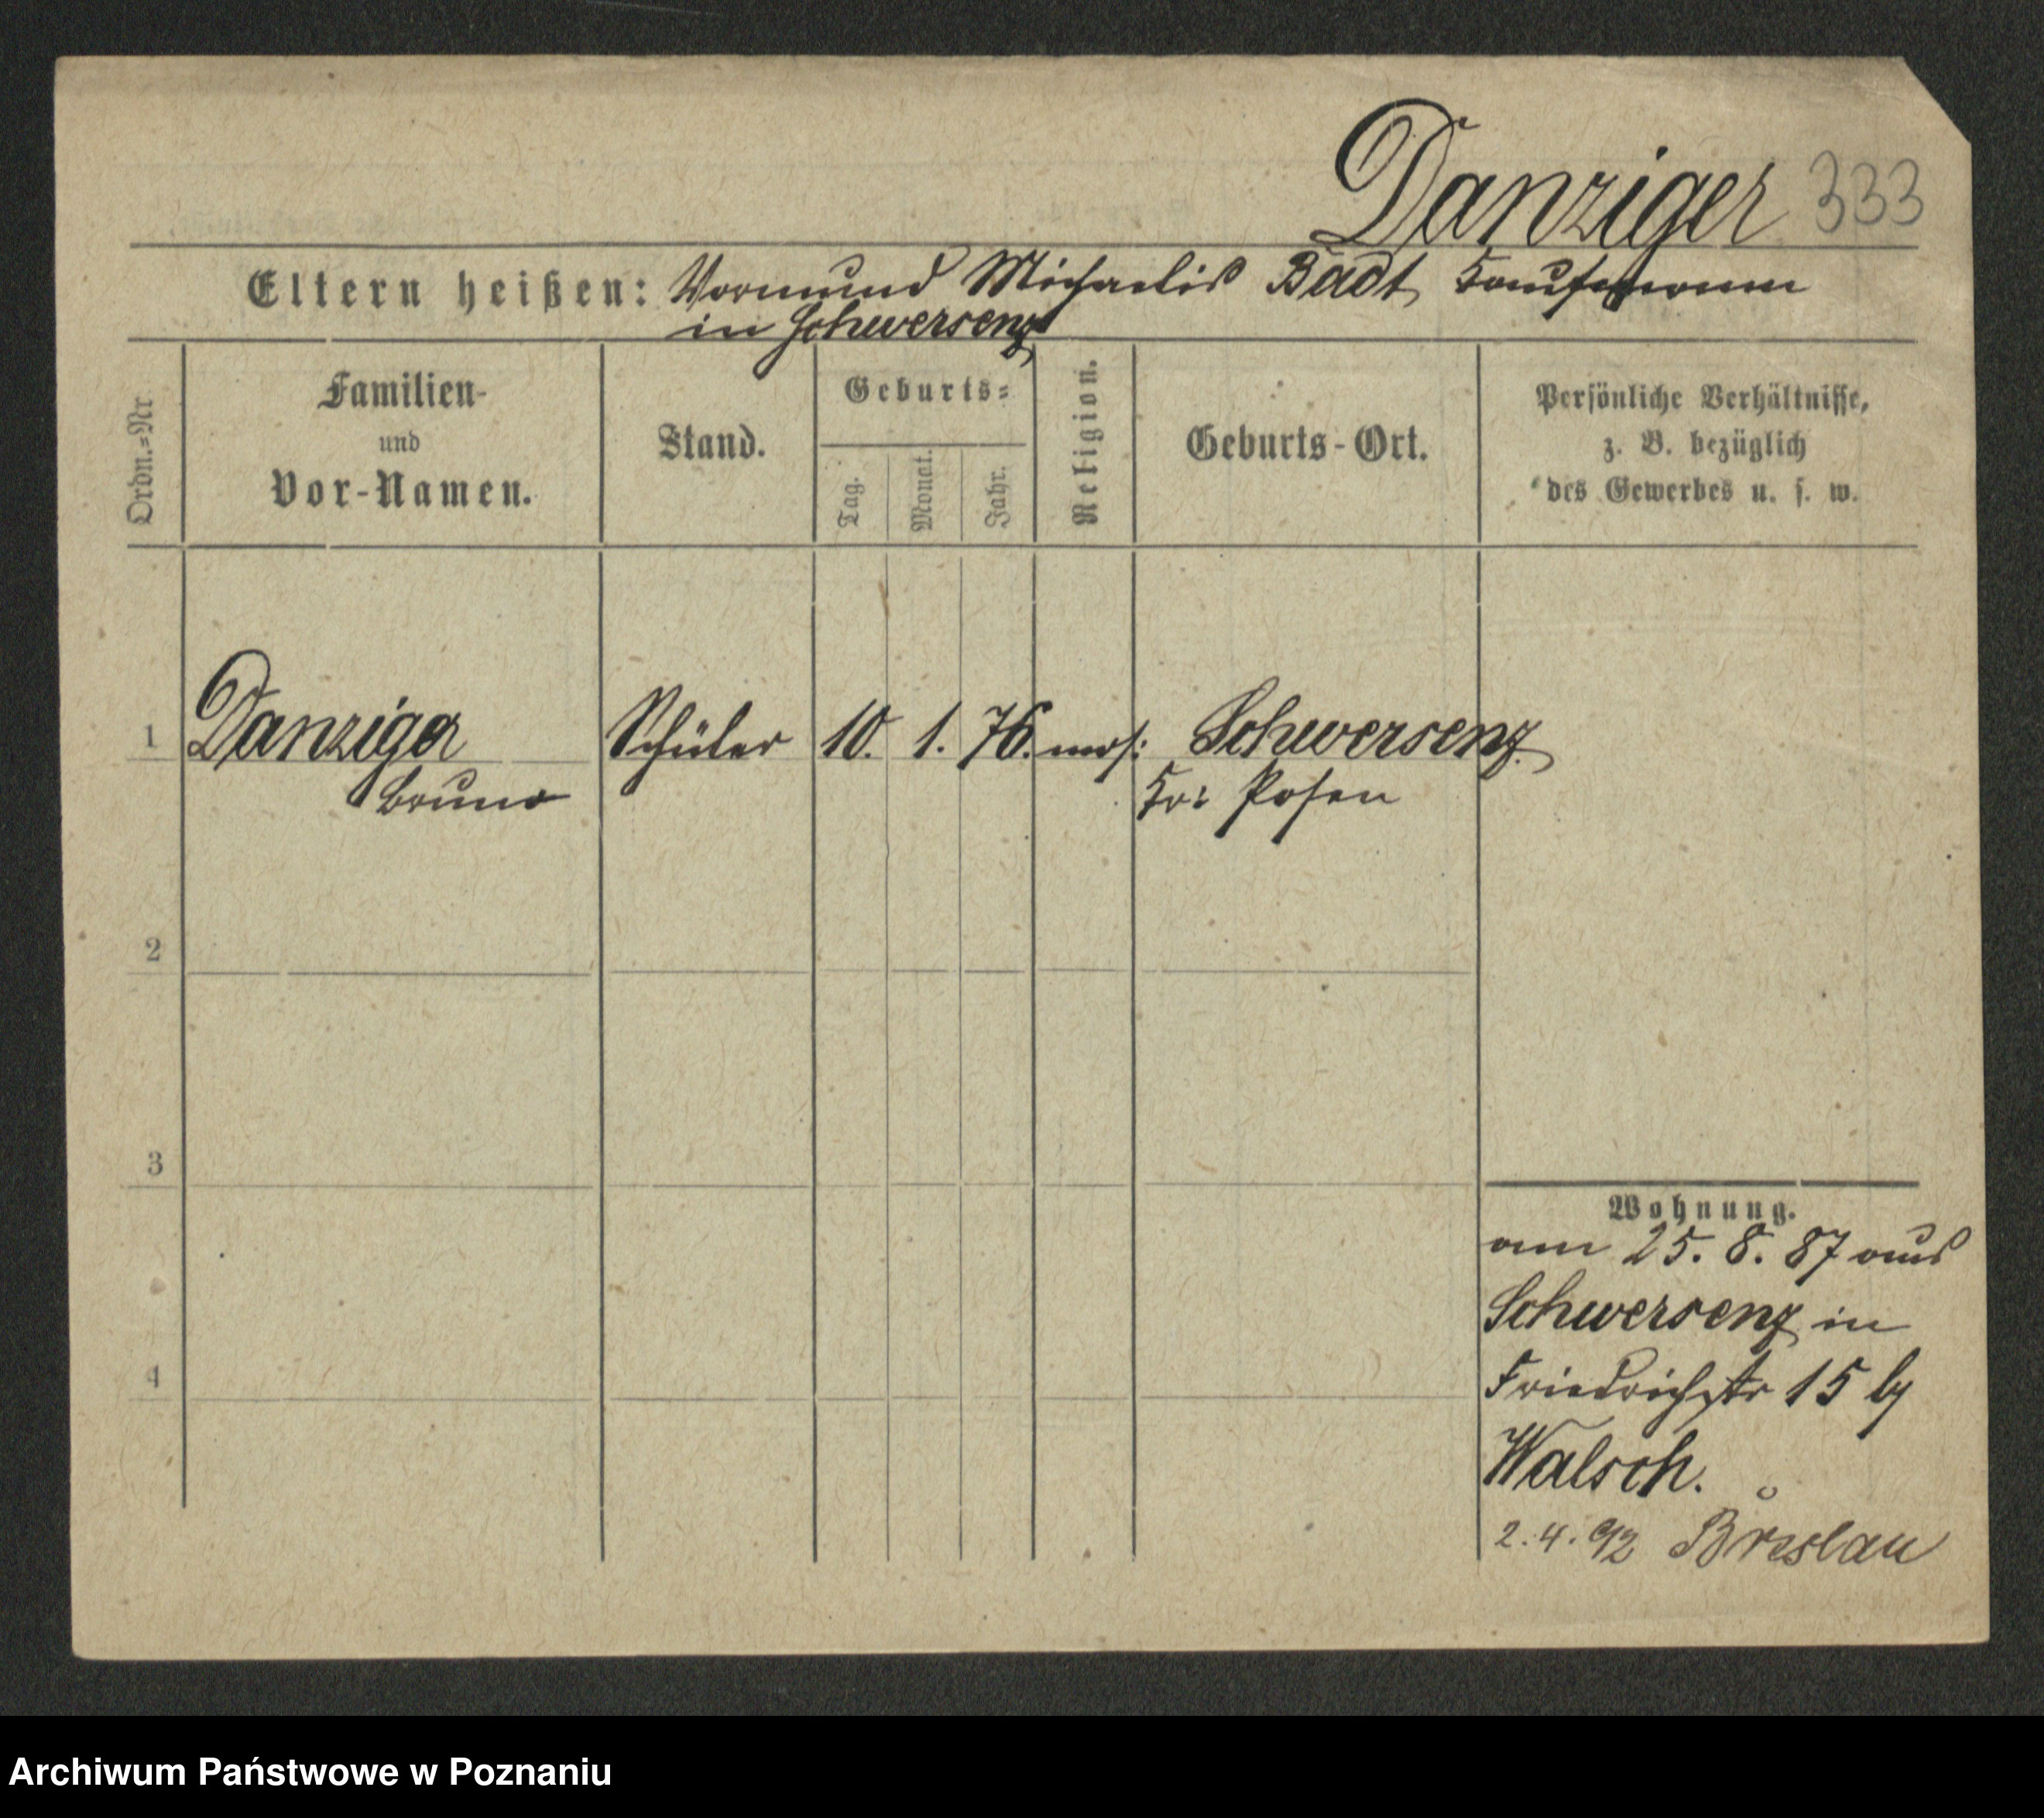 Danziger 333
Eltern heißen: Vormund Michaelis Badt, Kaufmann
in Schwersenz
Ordn.=Nr.
Familien-
und
Vor-Namen.
Stand.
Geburts=
Tag.
Monat.
Jahr.
Religion.
Geburts-Ort.
Persönliche Verhältnisse,
z. B. bezüglich
des Gewerbes u. s. w.
1 Danziger Schüler 10. 1. 76. mos: Schwersenz
Bruno Kr: Posen
2
3
Wohnung.
am 25. 8. 87 aus
Schwersenz in
4 Friedrichstr 15 by
Walsch.
2. 4. 92 Breslau
Archiwum Państwowe w Poznaniu